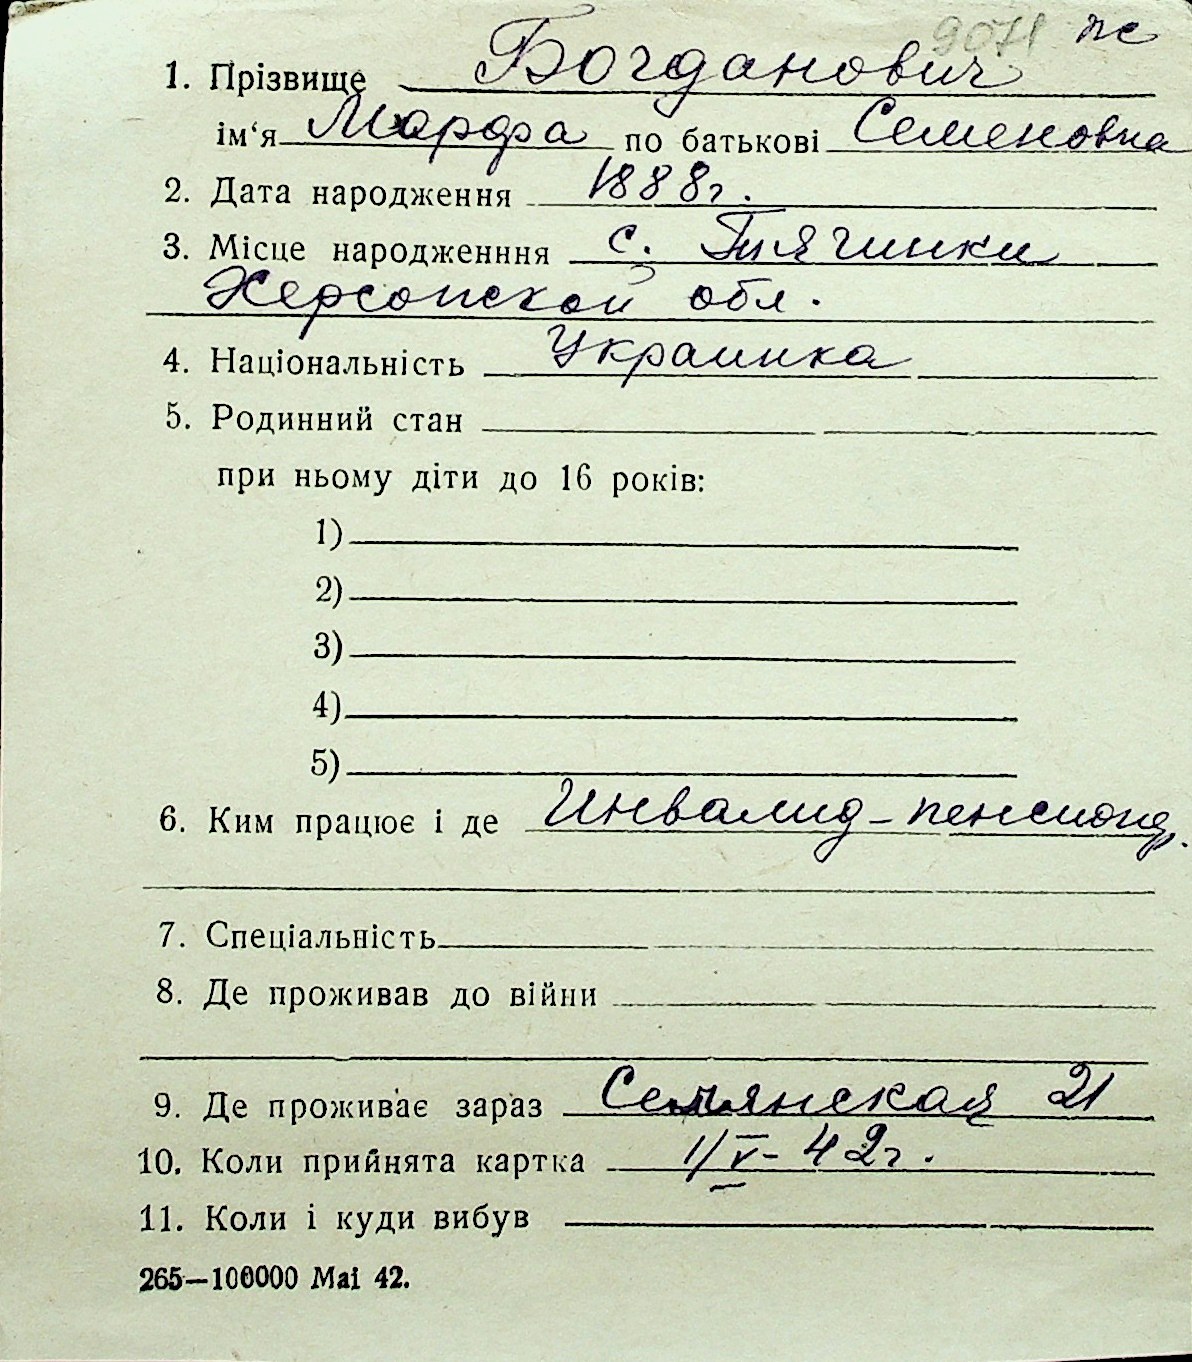 9071 ж
1. Прізвище Богданович
ім‘я Марфа по батькові Семеновна
2. Дата народження 1888г.
3. Місце народженння с. Тягинки
Херсонской обл.
4. Національність Украинка
5. Родинний стан
при ньому діти до 16 років:
1)
2)
3)
4)
5)
6. Ким працює і де Инвалид - пенсионер.
7. Спеціальність
8. Де проживав до війни
9. Де проживає зараз 21
10. Коли прийнята картка 1/V - 42г.
11. Коли і куди вибув
265—100000 Mai 42.